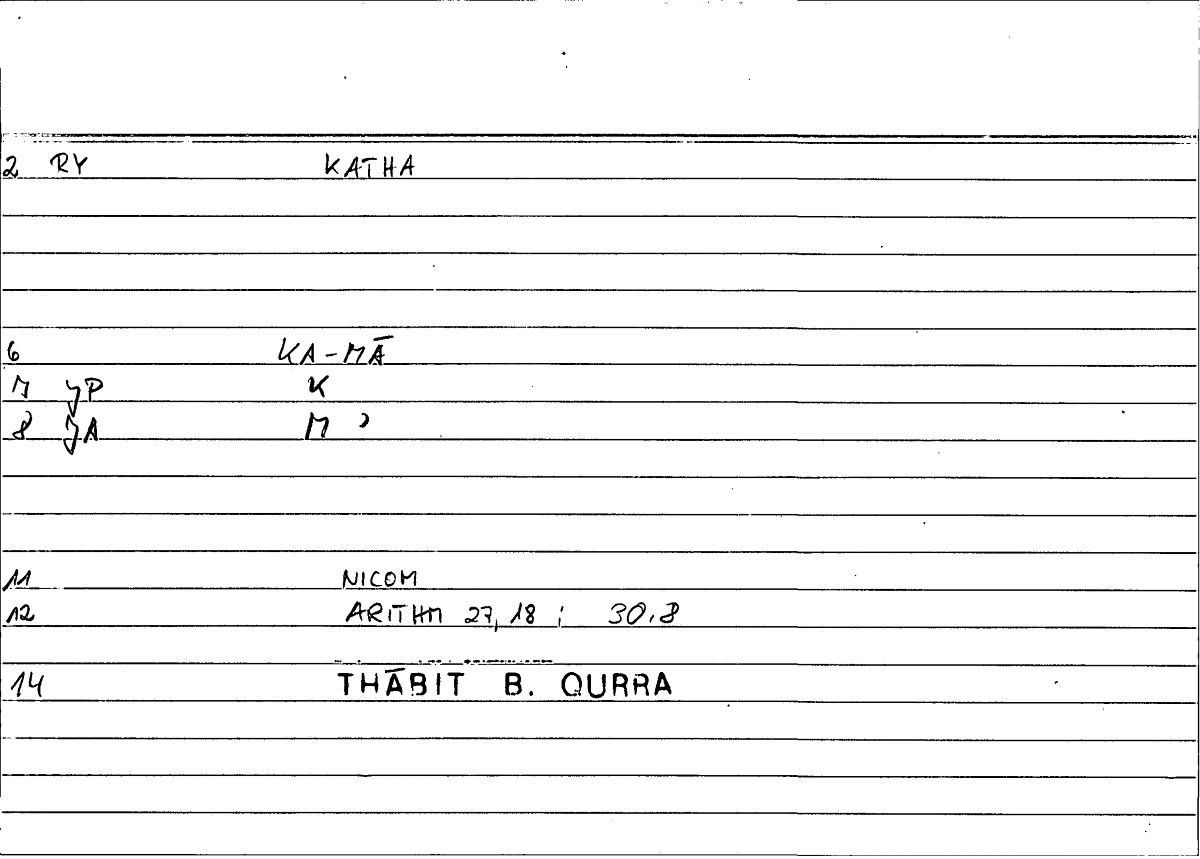 2 RY KATHA
6 KA-MĀ
7 JP K
8 JA M ʾ
11 NICOM
12 ARITHM 27,18 ; 30.8
14 THĀBIT B. QURRA